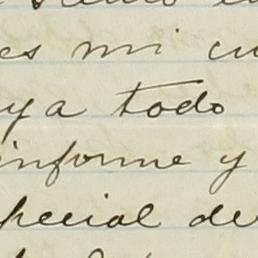 es mi cu
ya todo
informe y
pecial de